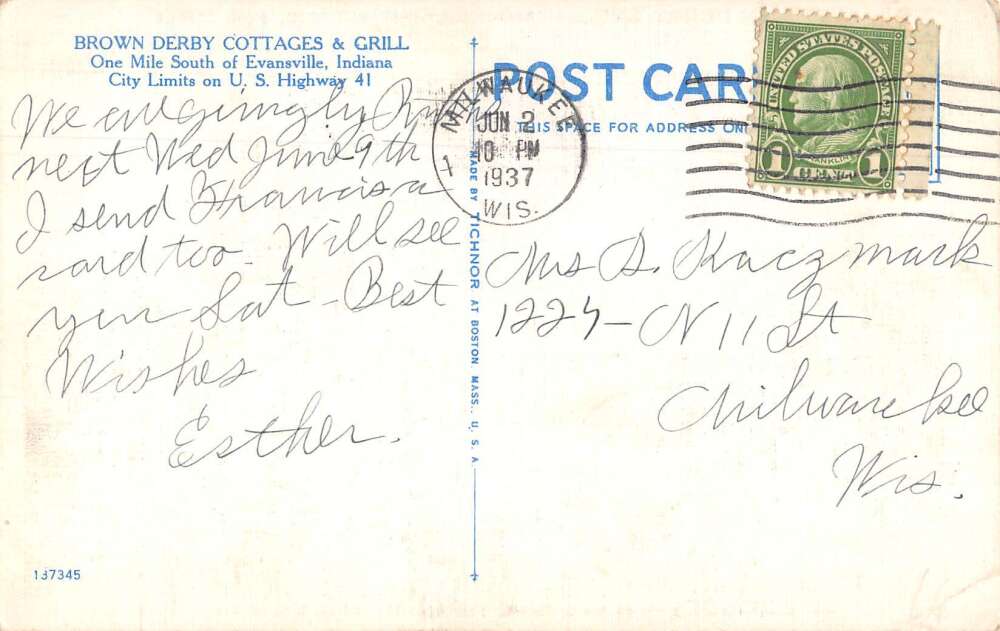 BROWN DERBY COTTAGES & GRILL
One Mile South of Evansville, Indiana
City Limits on U. S. Highway 41
We are
next Wed June 9th
I send Francis a
card too. Will see
you Sat - Best
Wishes
Esther.
137345
MADE BY TICHNOR AT BOSTON MASS., U. S. A.
POST CAR
THIS SPACE FOR ADDRESS ON
MILWAUKEE
JUN 2
10 PM
1937
WIS.
UNITED STATES POSTAGE
FRANKLIN
1 1
Mrs S. Kaczmark
1224- N 11 St
Milwaukee
Wis.